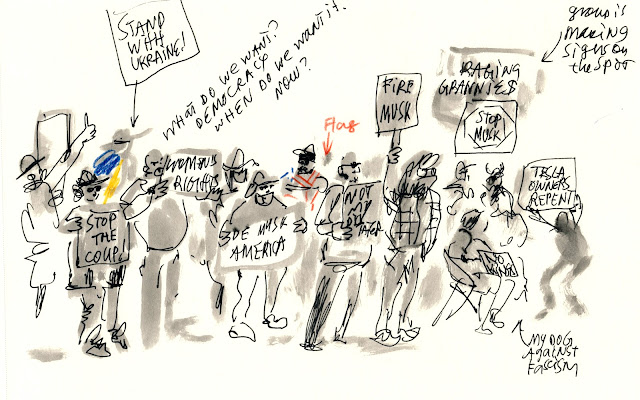 STAND
WITH
UKRAINE!
WHAT DO WE WANT?
DEMOCRACY
WHEN DO WE WANT IT.
NOW?
Flag
FIRE
MUSK
RAGING
GRANNIES
STOP
MUSK
group is
making
signs on
the spot
WOMEN'S
RIGHTS
STOP
THE
COUP!
DE MUSK
AMERICA
NOT
MY
DIC
TATOR
TESLA
OWNERS
REPENT!
NO
KINGS
MY DOG
Against
Fascism